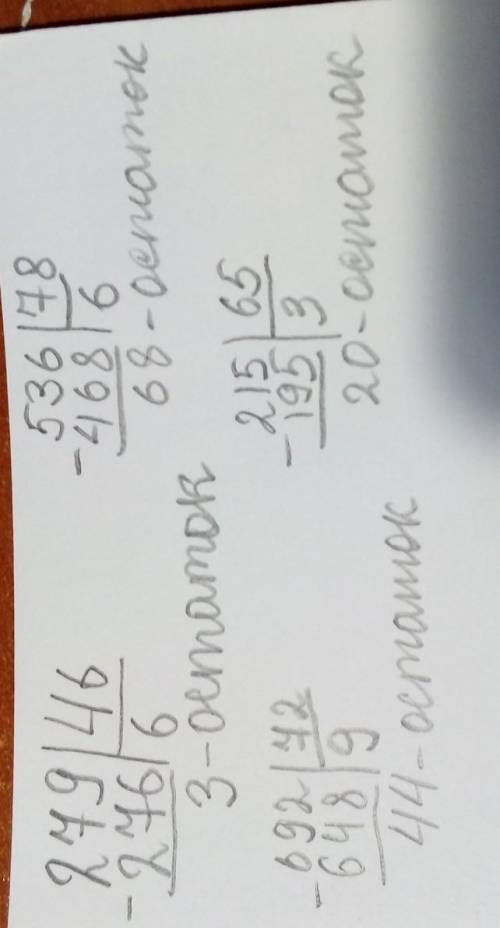 - 279 | 46
276 | 6
3 - остаток
- 536 | 78
468 | 6
68 - остаток
- 692 | 72
648 | 9
44 - остаток
- 215 | 65
195 | 3
20 - остаток